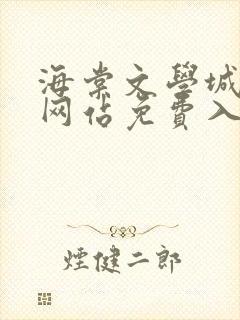 海棠文學城
网站免費入
煙健二郎